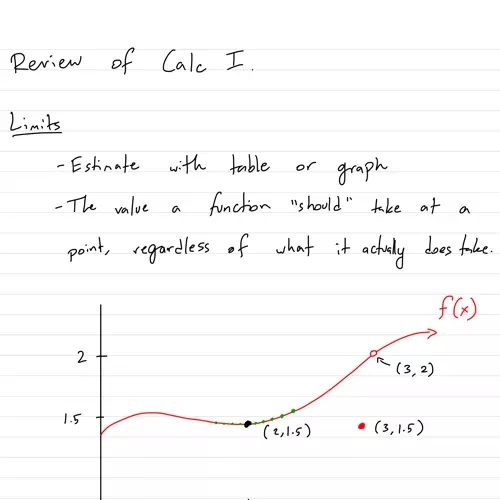 Review of Calc I.
Limits
- Estimate with table or graph
- The value a function "should" take at a
point, regardless of what it actually does take.
f(x)
2
(3, 2)
1.5
(2, 1.5)
(3, 1.5)